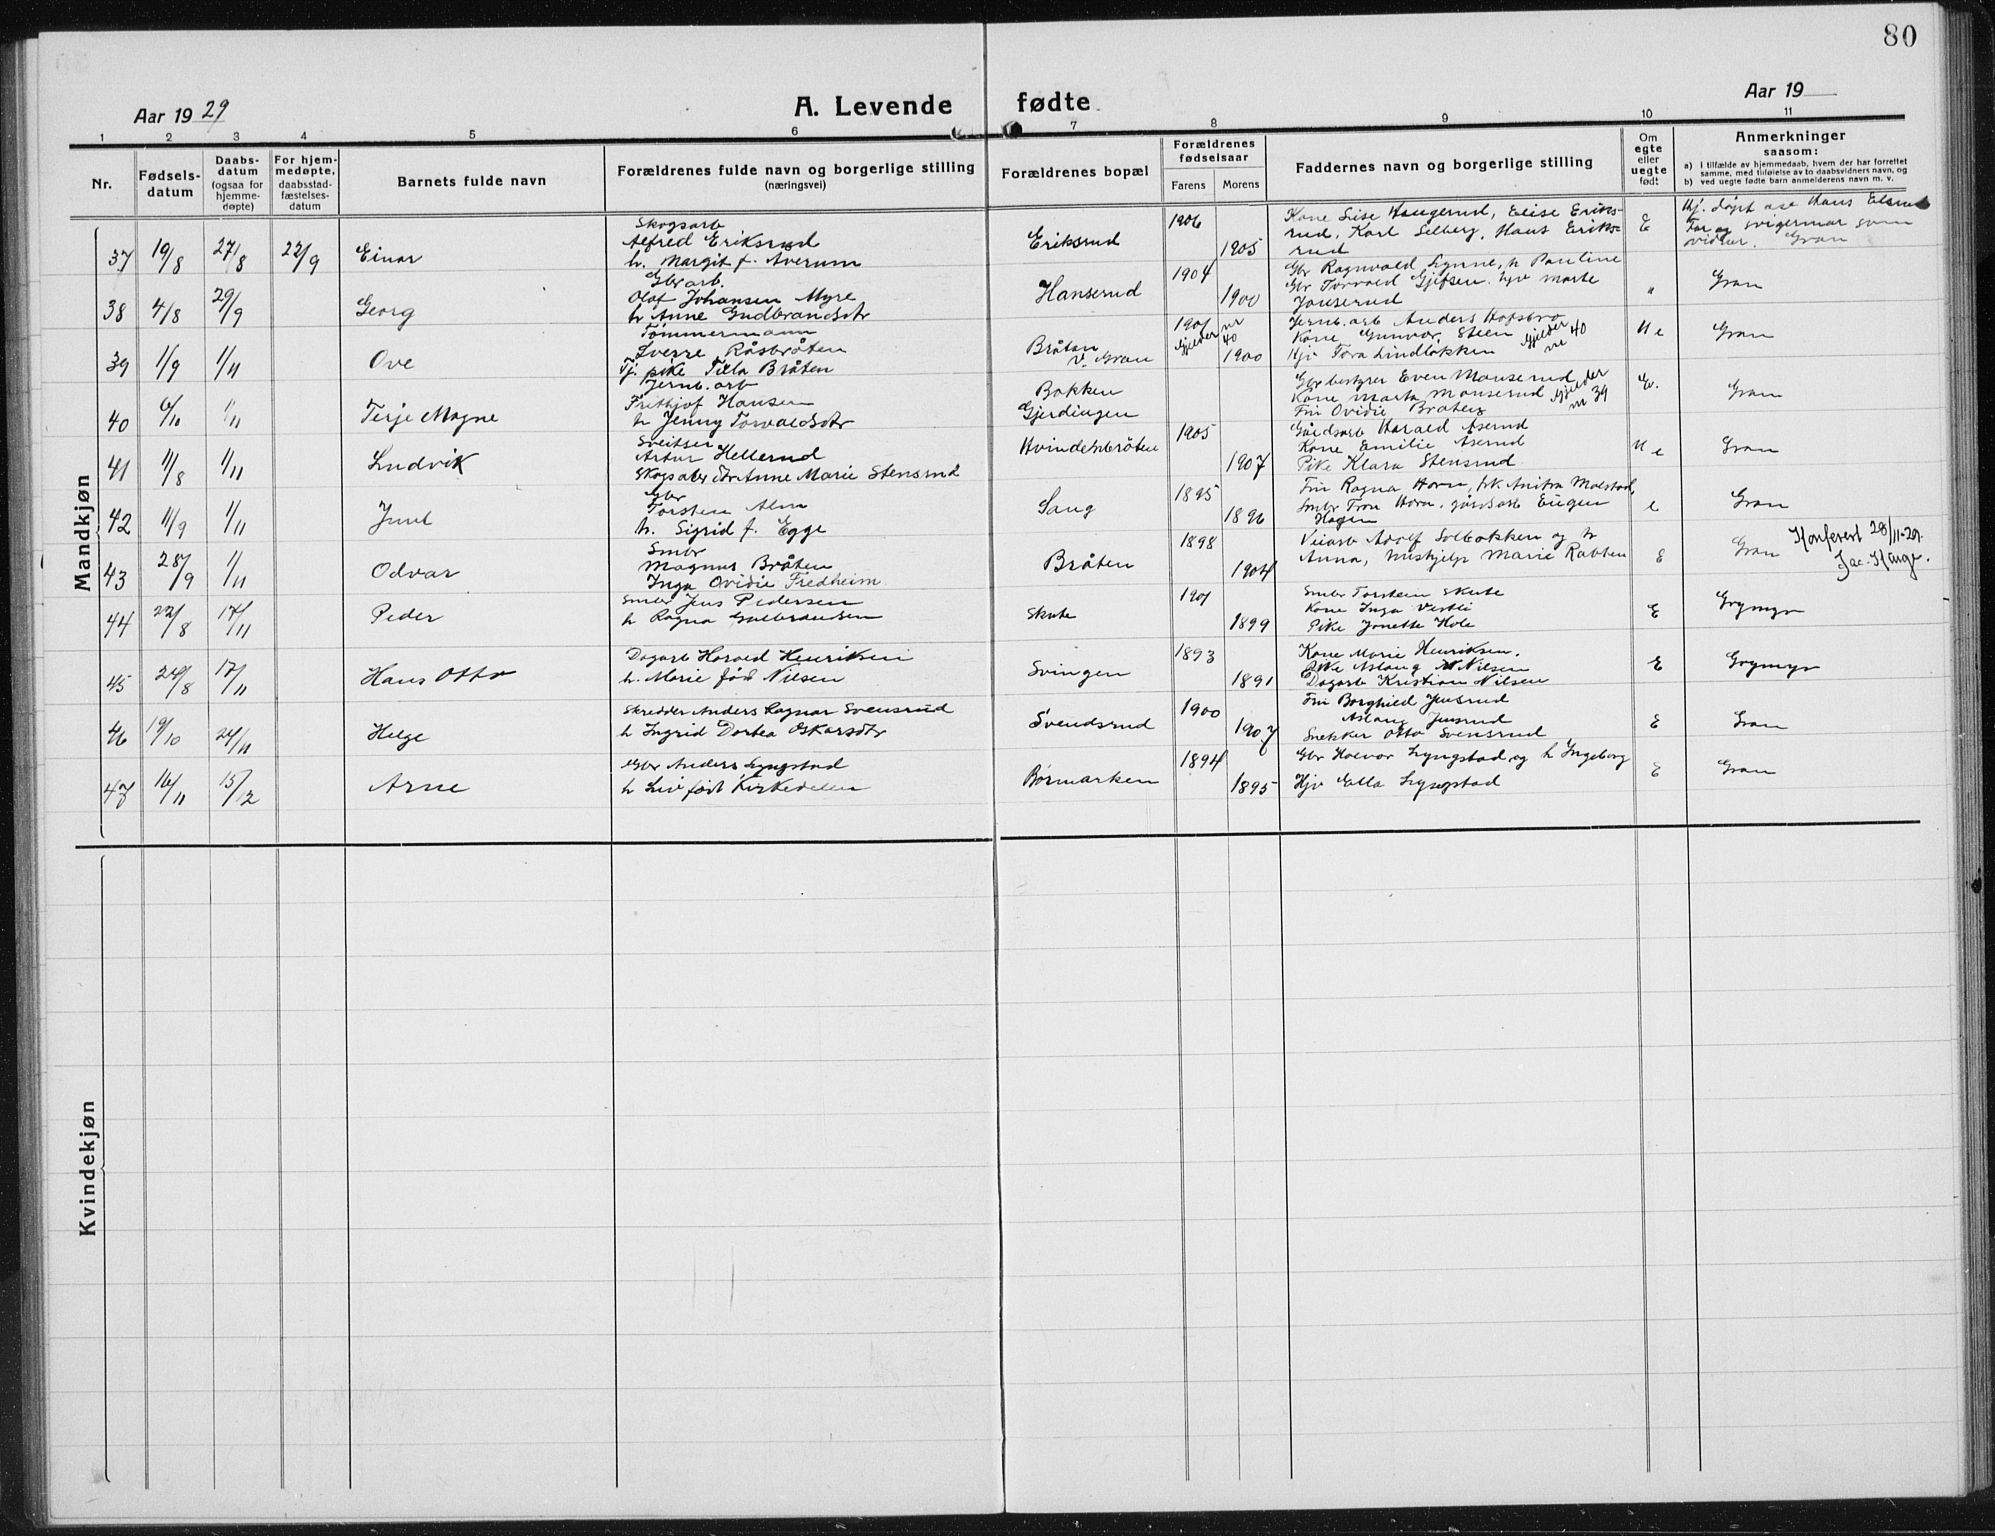 80
Aar 1929
A. Levende fødte
Aar 19
1 2 3 4 5 6 7 8 9 10 11
Nr.
Fødsels-
datum
Daabs-
datum
(ogsaa for
hjemme-
døpte)
For hjem-
medøpte,
daabsstad-
fæstelses-
datum
Barnets fulde navn
Forældrenes fulde navn og borgerlige stilling
(næringsvei)
Forældrenes bopæl
Forældrenes
fødselsaar
Farens Morens
Faddernes navn og borgerlige stilling
Om
egte
eller
uegte
født
Anmerkninger
saasom:
a) I tilfælde av hjemmedaab, hvem der har forrettet
samme, med tilføielse av to daabsvidners navn, og
b) ved uegte fødte barn anmelderens navn m. v.
Mandkjøn
37 19/8 27/8 22/9 Einar
Skogsarb
Alfred Eriksrud
h. Margit f. Averum
Eriksrud
1906 1905
Kone Lise Haugerud, Elise Eriks-
rud, Karl Selberg, Hans Eriks-
rud
E
Hj. døpt
Far og svigermor som
vidner. Gran
38 4/8 29/9 Georg
Gbr arb.
Olaf Johansen Myre
h. Anne Gudbrandsdtr
Hanserud
1904 1900
Gbr Ragnvald Lynne, h Pauline
Gbr Torvald Gjefsen. hjv Marte
Janserud
"
Gran
39 1/9 1/11 Ove
Tømmermann
Sverre Råsbråten
Tj. pike Tilla Bråten
Bråtan
v. Gran
1901 1900
gjelder nr 40
Jernb. arb Anders Hofsbro
Kone Gunvor Steen
Hjv Tora Lindløkken gjelder nr 40
U e
Gran
40 6/10 1/11 Terje Magne
Jernb. arb
Frithjof Hansen
h Jenny Torvaldsdtr
Bakken
Gjerdingen
Gbr bestyrer Even Manserud
Kone Marta Manserud gjelder
Fru Ovidie Braten nr 39
E.
Gran
41 11/8 1/11 Ludvik
Sveitser
Artur Hellerud
Anne Marie Stensrud
Hvindensbråten
1905 1907
Gårdsarb Harald Åserud
Kone Emilie Åserud
Pike Klara Stensrud
U e
Gran
42 11/9 1/11 Juul
Gbr
Torsten Alm
h. Sigrid f. Egge
Sang
1895 1896
Fru Ragna Horn, frk Anitra Molstad,
Smbr Tron Horn, gårdsarb Eugen
Hagen
e
Gran
43 28/9 1/11 Odvar
Smbr
Magnus Bråten
Inga Ovidie Fredheim
Bråten
1898 1904
Veiarb Adolf Solbakken og h
Anna, hushjelp Marie Rabben
E
Gran Konferert 28/11-29.
Jac. Hauge.
44 22/8 17/11 Peder
Smbr Jens Pedersen
h Ragna Gulbrandsen
Skute
1901 1899
Smbr Torstein Skute
Kone Inga Vestli
Pike Jonette Hole
E
Grymyr
45 24/8 17/11 Hans Otto
Dagarb Harald Henriksen
h. Marie født Nilsen
Svingen
1893 1891
Kone Marie Henriksen.
Pike Aslaug Nilsen
Dagarb Kristian Nilsen
E
Grymyr
46 19/10 24/11 Helge
Skredder Anders Ragnar Svensrud
h Ingrid Dortea Oskarsdtr
Svendsrud
1900 1907
Fru Borghild Jensrud
Aslaug Jensrud
Snekker Otto Svensrud
E
Gran
47 16/11 15/12 Arne
Gbr Anders Lyngstad
h Liv født Kirkedelen
Børmarken
1894 1895
Gbr Halvor Lyngstad og h Ingeborg
Hjv Ella Lyngstad
E
Gran
Kvindekjøn